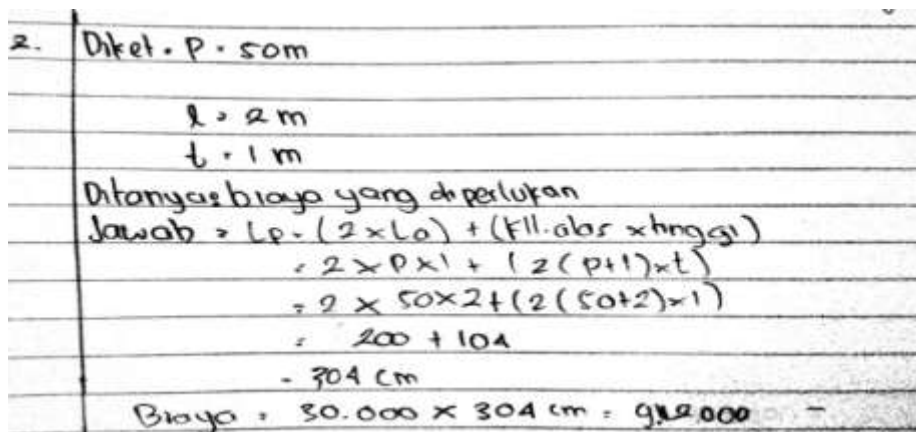 2. Diket. P. 50m
l = 2 m
t = 1 m
Ditanya: biaya yang diperlukan
Jawab = Lp = (2 x La) + (kll. alas x tinggi)
= 2 x p x l + (2(p+l) x t)
= 2 x 50 x 2 + (2(50+2) x 1)
= 200 + 104
= 304 cm
Biaya = 30.000 x 304 cm =